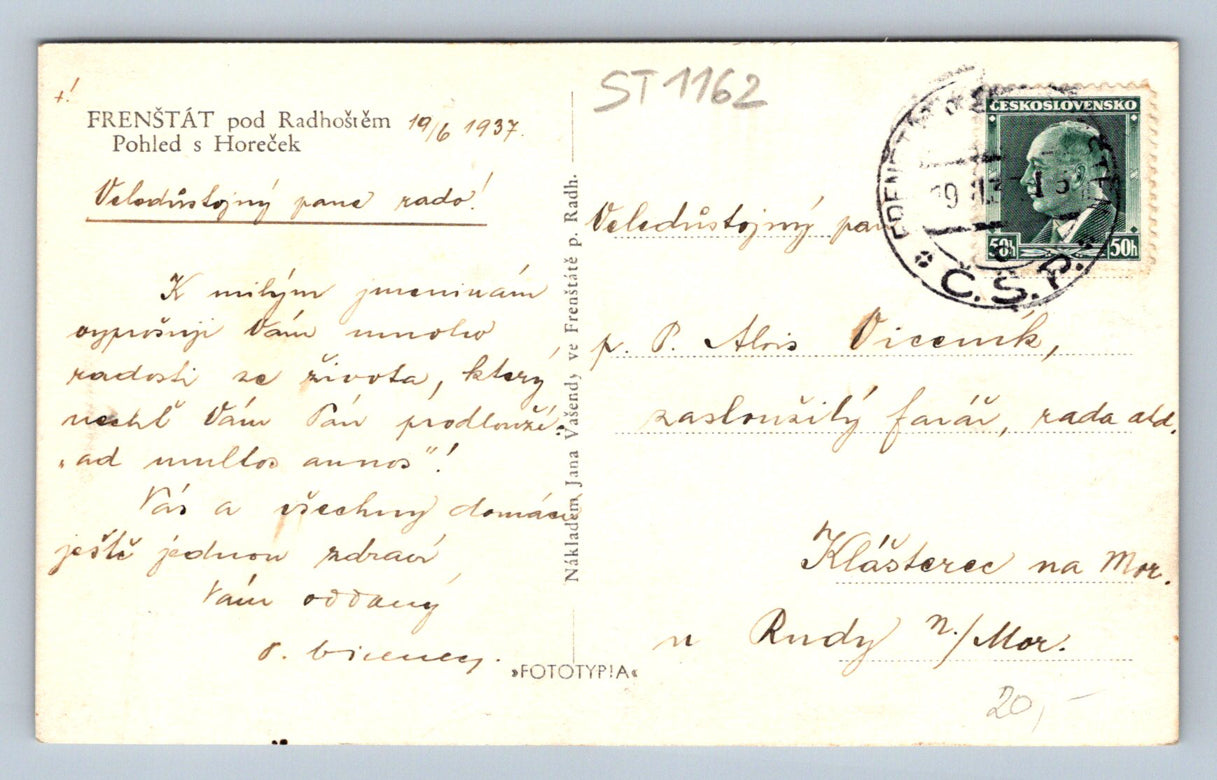 +!
FRENŠTÁT pod Radhoštěm
Pohled s Horeček
19/6 1937.
Veledůstojný pane rado!
K milým jmeninám
vyprošuji Vám mnoho
radosti ze života, který
nechť Vám Pán prodlouží
„ad multos annos"!
Vás a všechny domácí
ještě jednou zdraví
Vám oddaný
Nákladem Jana Vašendy ve Frenštátě p. Radh.
»FOTOTYPIA«
ST 1162
ČESKOSLOVENSKO
50h 50h
Č.S.P.
Veledůstojný pan
p. P. Alois Viceník,
zasloužilý farář, rada atd.
Klášterec na Mor.
u Rudy n./Mor.
20,-